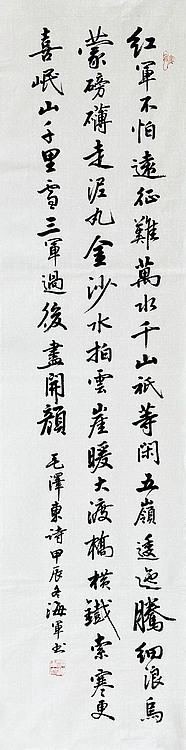 紅軍不怕遠征難萬水千山祇等閑五嶺逶迤騰細浪烏
蒙磅礴走泥丸金沙水拍雲崖暖大渡橋橫鐵索寒更
喜岷山千里雪三軍過後盡開顏
毛澤東诗甲辰冬海軍书